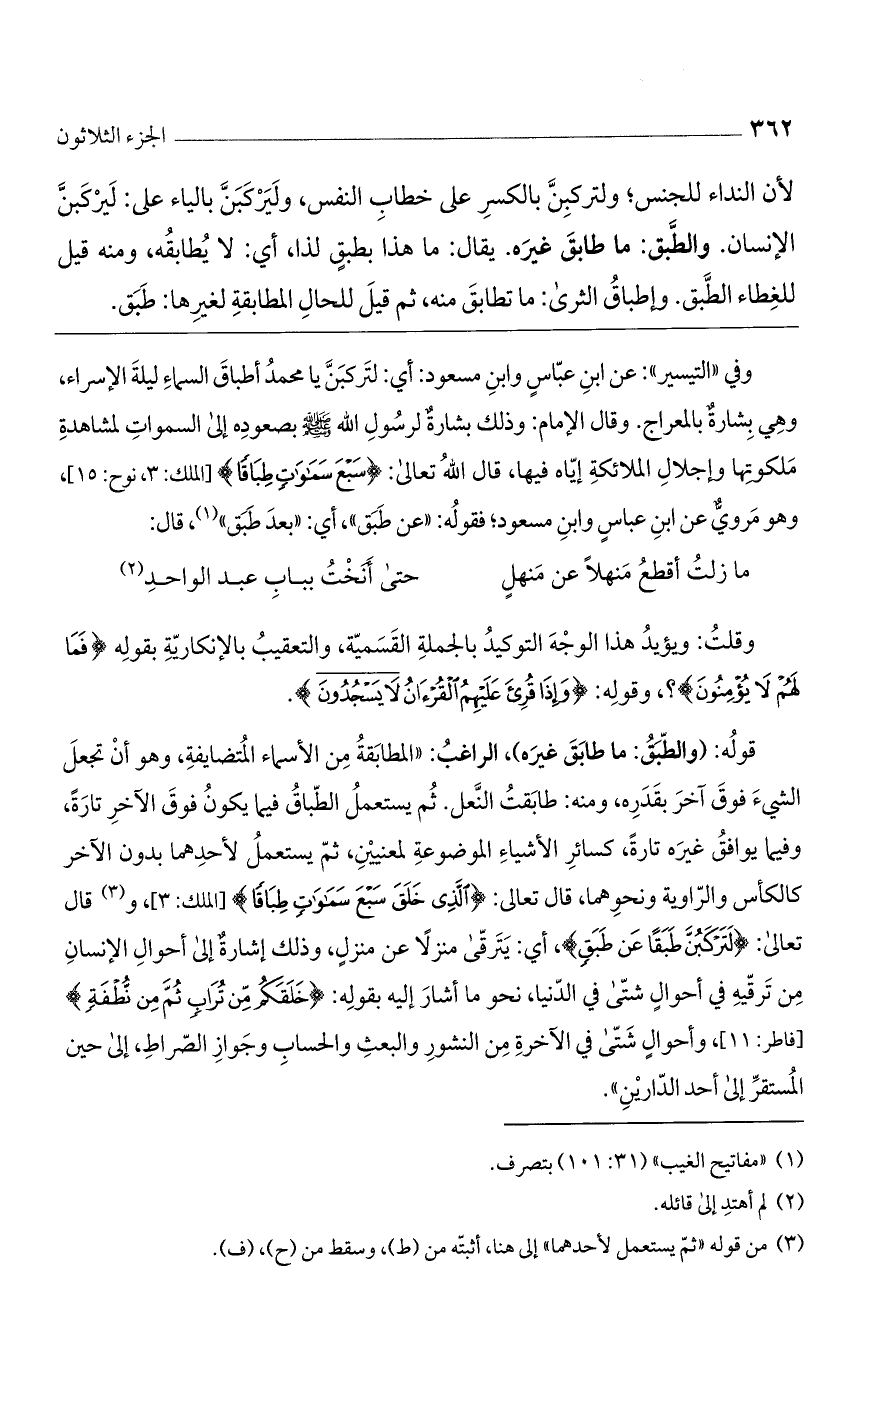 ٣٦٢ الجزء الثلاثون
لأن النداء للجنس؛ ولتركبِنَّ بالكسرِ على خطابِ النفس، ولَيَرْكَبَنَّ بالياء على: لَيَرْكَبنَّ
الإنسان. والطَّبق: ما طابقَ غيرَه. يقال: ما هذا بطبقٍ لذا، أي: لا يُطابقُه، ومنه قيل
للغِطاء الطَّبق. وإطباقُ الثرىٰ: ما تطابقَ منه، ثم قيلَ للحالِ المطابقةِ لغيرِها: طَبَق.
وفي «التيسير»: عن ابنِ عبّاسٍ وابنِ مسعود: أي: لتَركبَنَّ يا محمدُ أطباقَ السماءِ ليلةَ الإسراء،
وهِي بِشارةٌ بالمعراج. وقال الإمام: وذلك بشارةٌ لرسُولِ الله ﷺ بصعودِه إلىٰ السمواتِ لمشاهدةِ
مَلكوتِها وإجلالِ الملائكةِ إيّاه فيها، قال اللهُ تعالىٰ: ﴿سَبْعَ سَمَٰوَٰتٍ طِبَاقًا﴾ [الملك: ٣، نوح: ١٥]،
وهو مَرويٌّ عن ابنِ عباسٍ وابنِ مسعود؛ فقولُه: «عن طَبَق»، أي: «بعدَ طَبَق»(١)، قال:
ما زلتُ أقطعُ مَنهلاً عن مَنهلٍ حتىٰ أَنَخْتُ ببـابِ عبـد الواحـدِ(٢)
وقلتُ: ويؤيدُ هذا الوجْهَ التوكيدُ بالجملةِ القَسَميّة، والتعقيبُ بالإنكاريّةِ بقولِه ﴿فَمَا
لَهُمْ لَا يُؤْمِنُونَ﴾؟، وقولِه: ﴿وَإِذَا قُرِئَ عَلَيْهِمُ ٱلْقُرْءَانُ لَا يَسْجُدُونَ﴾.
قولُه: (والطّبَقُ: ما طابَقَ غيرَه)، الراغبُ: «المطابَقةُ مِن الأسماء المُتضايفةِ، وهو أنْ تجعلَ
الشيءَ فوقَ آخرَ بقَدَرِه، ومنه: طابَقتُ النَّعل. ثُم يستعملُ الطّباقُ فيما يكونُ فوقَ الآخرِ تارَةً،
وفيما يوافقُ غيرَه تارةً، كسائرِ الأشياءِ الموضوعةِ لمعنييْنِ، ثمّ يستعملُ لأحدِهما بدون الآخر
كالكأس والرّاوية ونحوِهما، قال تعالى: ﴿ٱلَّذِى خَلَقَ سَبْعَ سَمَٰوَٰتٍ طِبَاقًا﴾ [الملك: ٣]، و(٣) قال
تعالىٰ: ﴿لَتَرْكَبُنَّ طَبَقًا عَن طَبَقٍ﴾، أي: يَتَرقّىٰ منزلًا عن منزلٍ، وذلك إشارةٌ إلىٰ أحوالِ الإنسانِ
مِن تَرقّيهِ في أحوالٍ شتّىٰ في الدّنيا، نحو ما أشارَ إليه بقولِه: ﴿خَلَقَكُم مِّن تُرَابٍ ثُمَّ مِن نُّطْفَةٍ﴾
[فاطر: ١١]، وأحوالٍ شَتّىٰ في الآخرةِ مِن النشورِ والبعثِ والحسابِ وجَوازِ الصّراطِ، إلىٰ حين
المُستقرِّ إلىٰ أحد الدّاريْنِ».
(١) «مفاتيح الغيب» (٣١: ١٠١) بتصرف.
(٢) لم أهتدِ إلىٰ قائله.
(٣) من قوله «ثمّ يستعمل لأحدهما» إلى هنا، أثبتّه من (ط)، وسقط من (ح)، (ف).